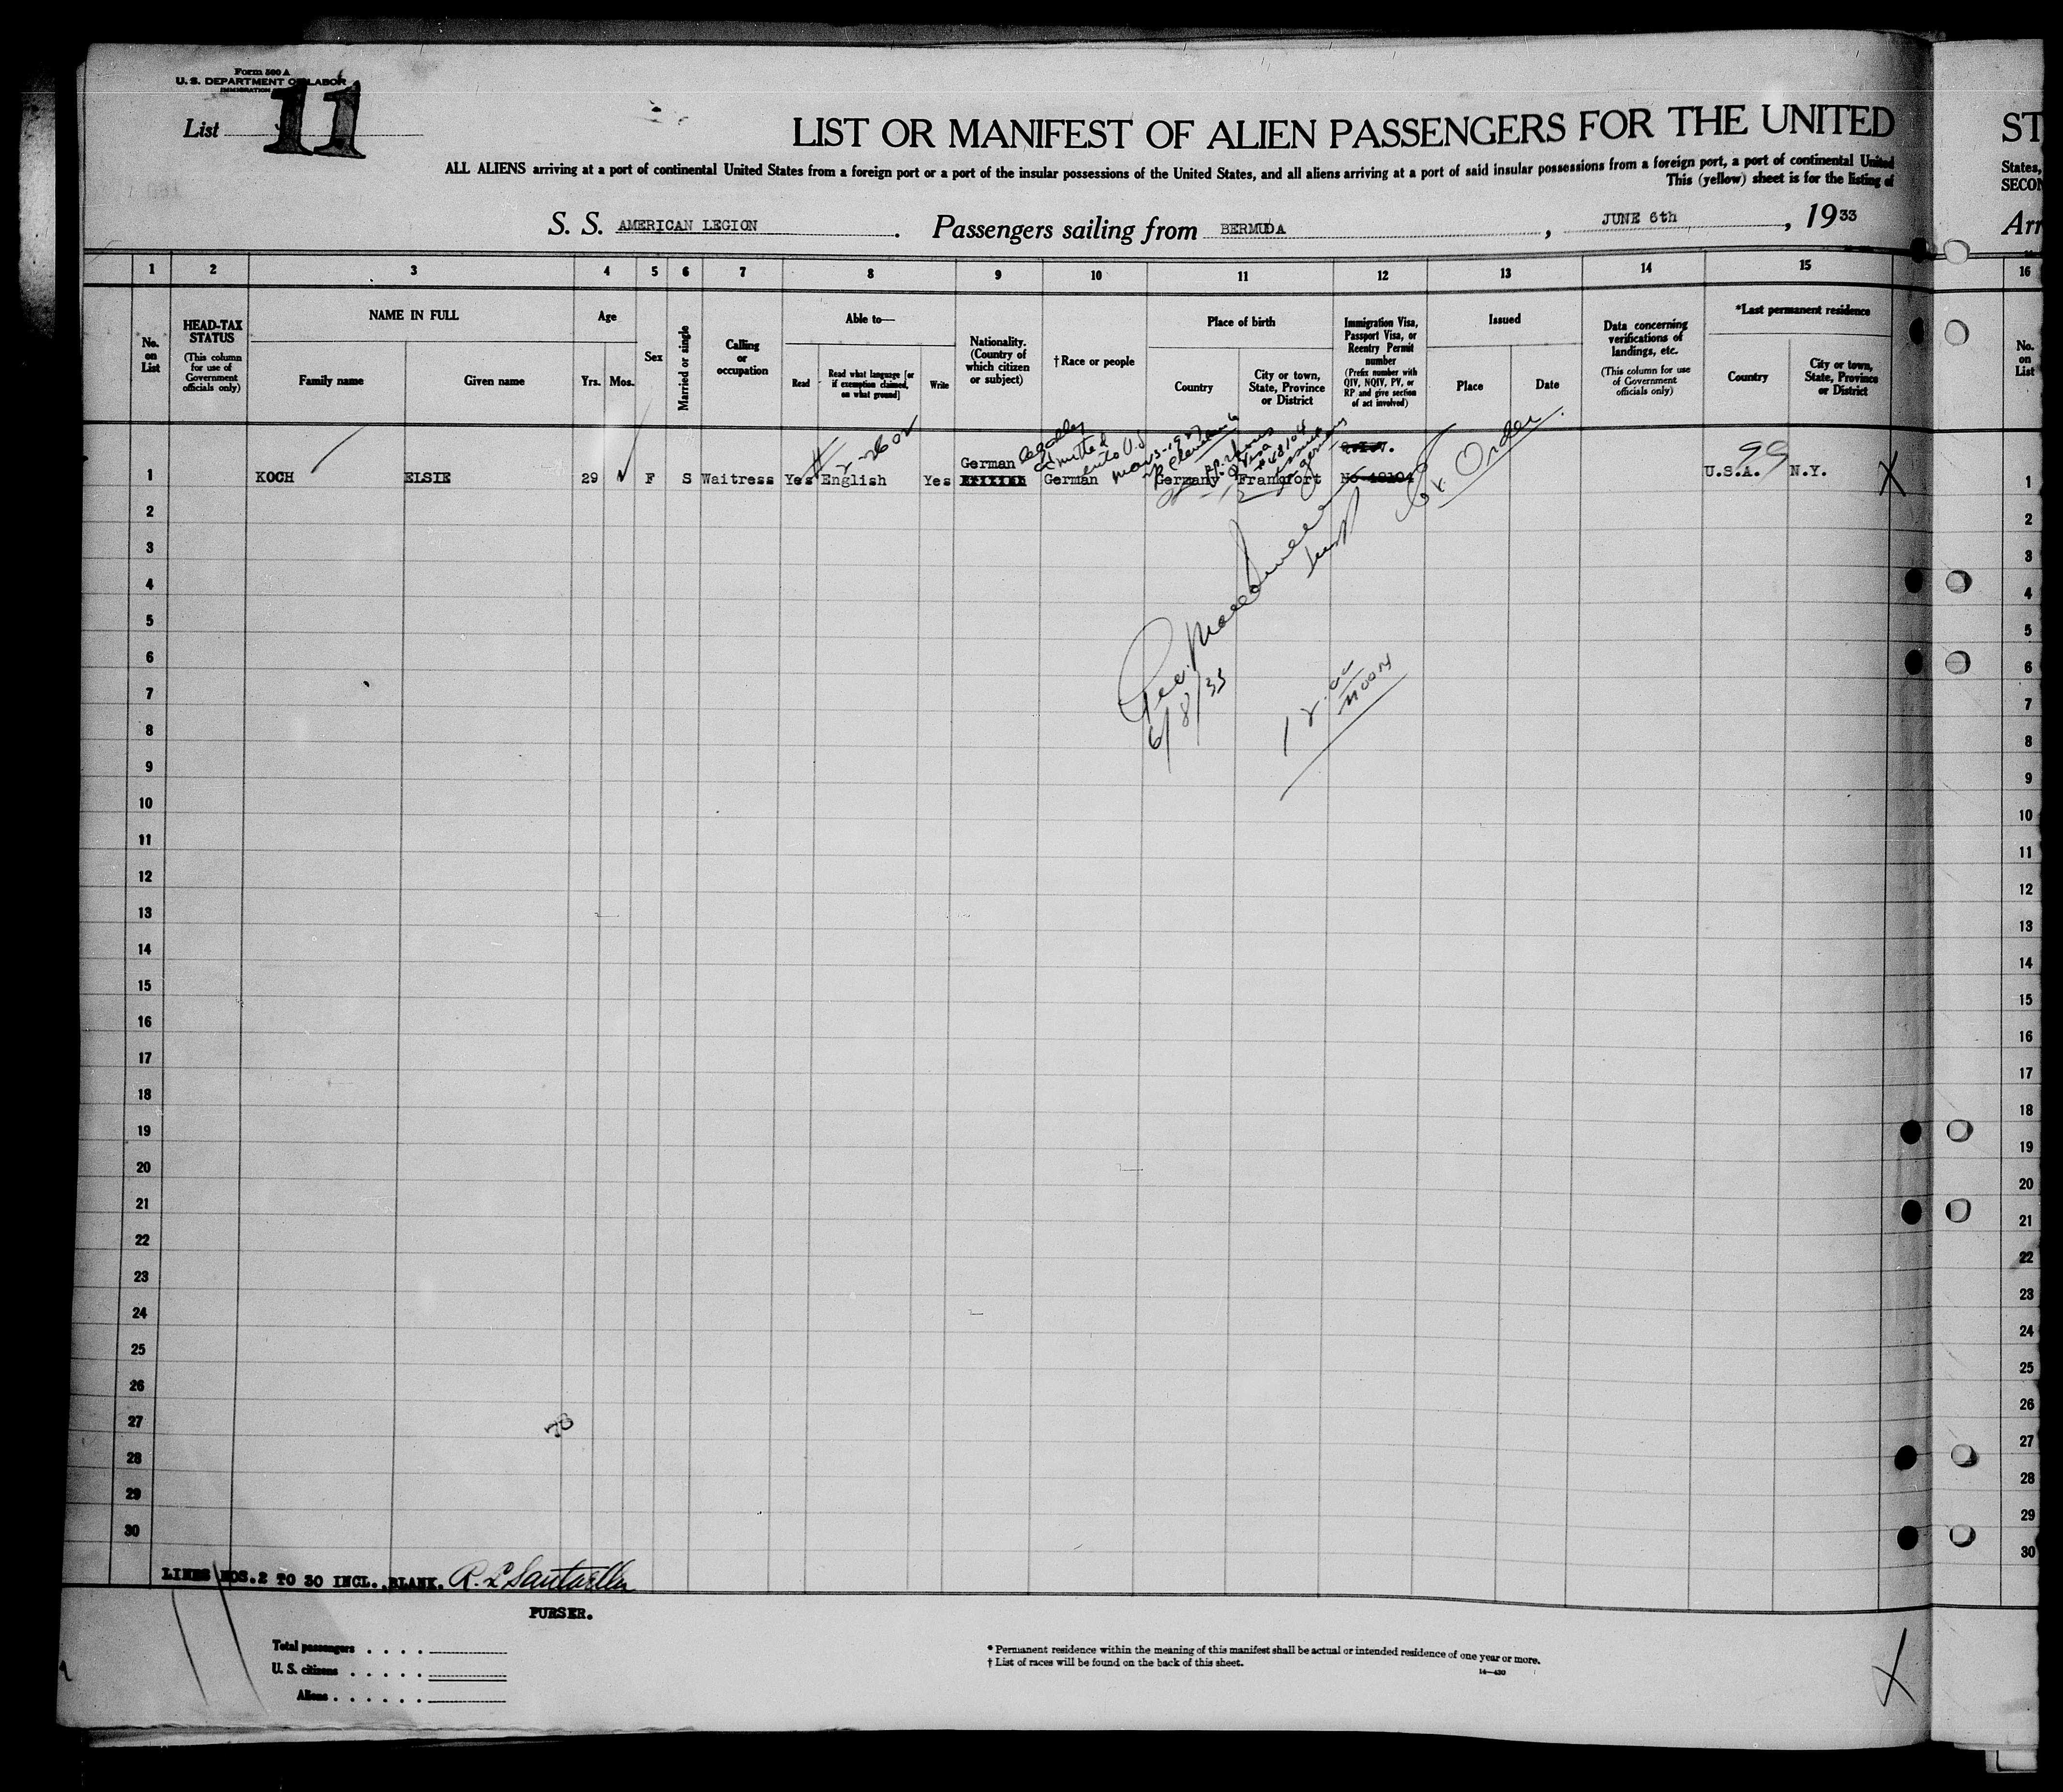 Form 500 A
U. S. DEPARTMENT OF LABOR
IMMIGRATION
List 11
LIST OR MANIFEST OF ALIEN PASSENGERS FOR THE UNITED
ST
ALL ALIENS arriving at a port of continental United States from a foreign port or a port of the insular possessions of the United States, and all aliens arriving at a port of said insular possessions from a foreign port, a port of continental United
States,
This (yellow) sheet is for the listing of
SECON
S. S. AMERICAN LEGION . Passengers sailing from BERMUDA , JUNE 6th , 1933
Arr
1 2 3 4 5 6 7 8 9 10 11 12 13 14 15 16
No. on List
HEAD-TAX STATUS
(This column for use of Government officials only)
NAME IN FULL
Family name
Given name
Age
Yrs. Mos.
Sex
Married or single
Calling or occupation
Able to—
Read
Read what language [or if exemption claimed, on what ground]
Write
Nationality. (Country of which citizen or subject)
†Race or people
Place of birth
Country
City or town, State, Province or District
Immigration Visa, Passport Visa, or Reentry Permit number
(Prefix number with QIV, NQIV, PV, or RP and give section of act involved)
Issued
Place
Date
Data concerning verifications of landings, etc.
(This column for use of Government officials only)
*Last permanent residence
Country
City or town, State, Province or District
No. on List
admitted
99
Or. Order
German
1 KOCH ELSIE 29 F S Waitress Yes English Yes German Germany Frankfort U.S.A. N.Y. X 1
2 2
3 3
4 4
5 5
6 6
7 7
8 8
9 9
10 10
11 11
12 12
13 13
14 14
15 15
16 16
17 17
18 18
19 19
20 20
21 21
22 22
23 23
24 24
25 25
26 26
27 27
28 28
29 29
30 30
6/8/33
12.00 noon
78
LINES NOS.2 TO 30 INCL. BLANK. R. L. Santaella
PURSER.
Total passengers
U. S. citizens
Aliens
* Permanent residence within the meaning of this manifest shall be actual or intended residence of one year or more.
† List of races will be found on the back of this sheet.
14—430
X